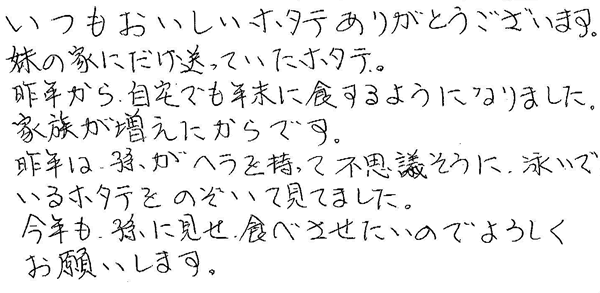 いつもおいしいホタテありがとうございます。
妹の家にだけ送っていたホタテ。
昨年から、自宅でも年末に食するようになりました。
家族が増えたからです。
昨年は、孫、がヘラを持って不思議そうに、泳いで
いるホタテをのぞいて見てました。
今年も、孫、に見せ、食べさせたいのでよろしく
お願いします。